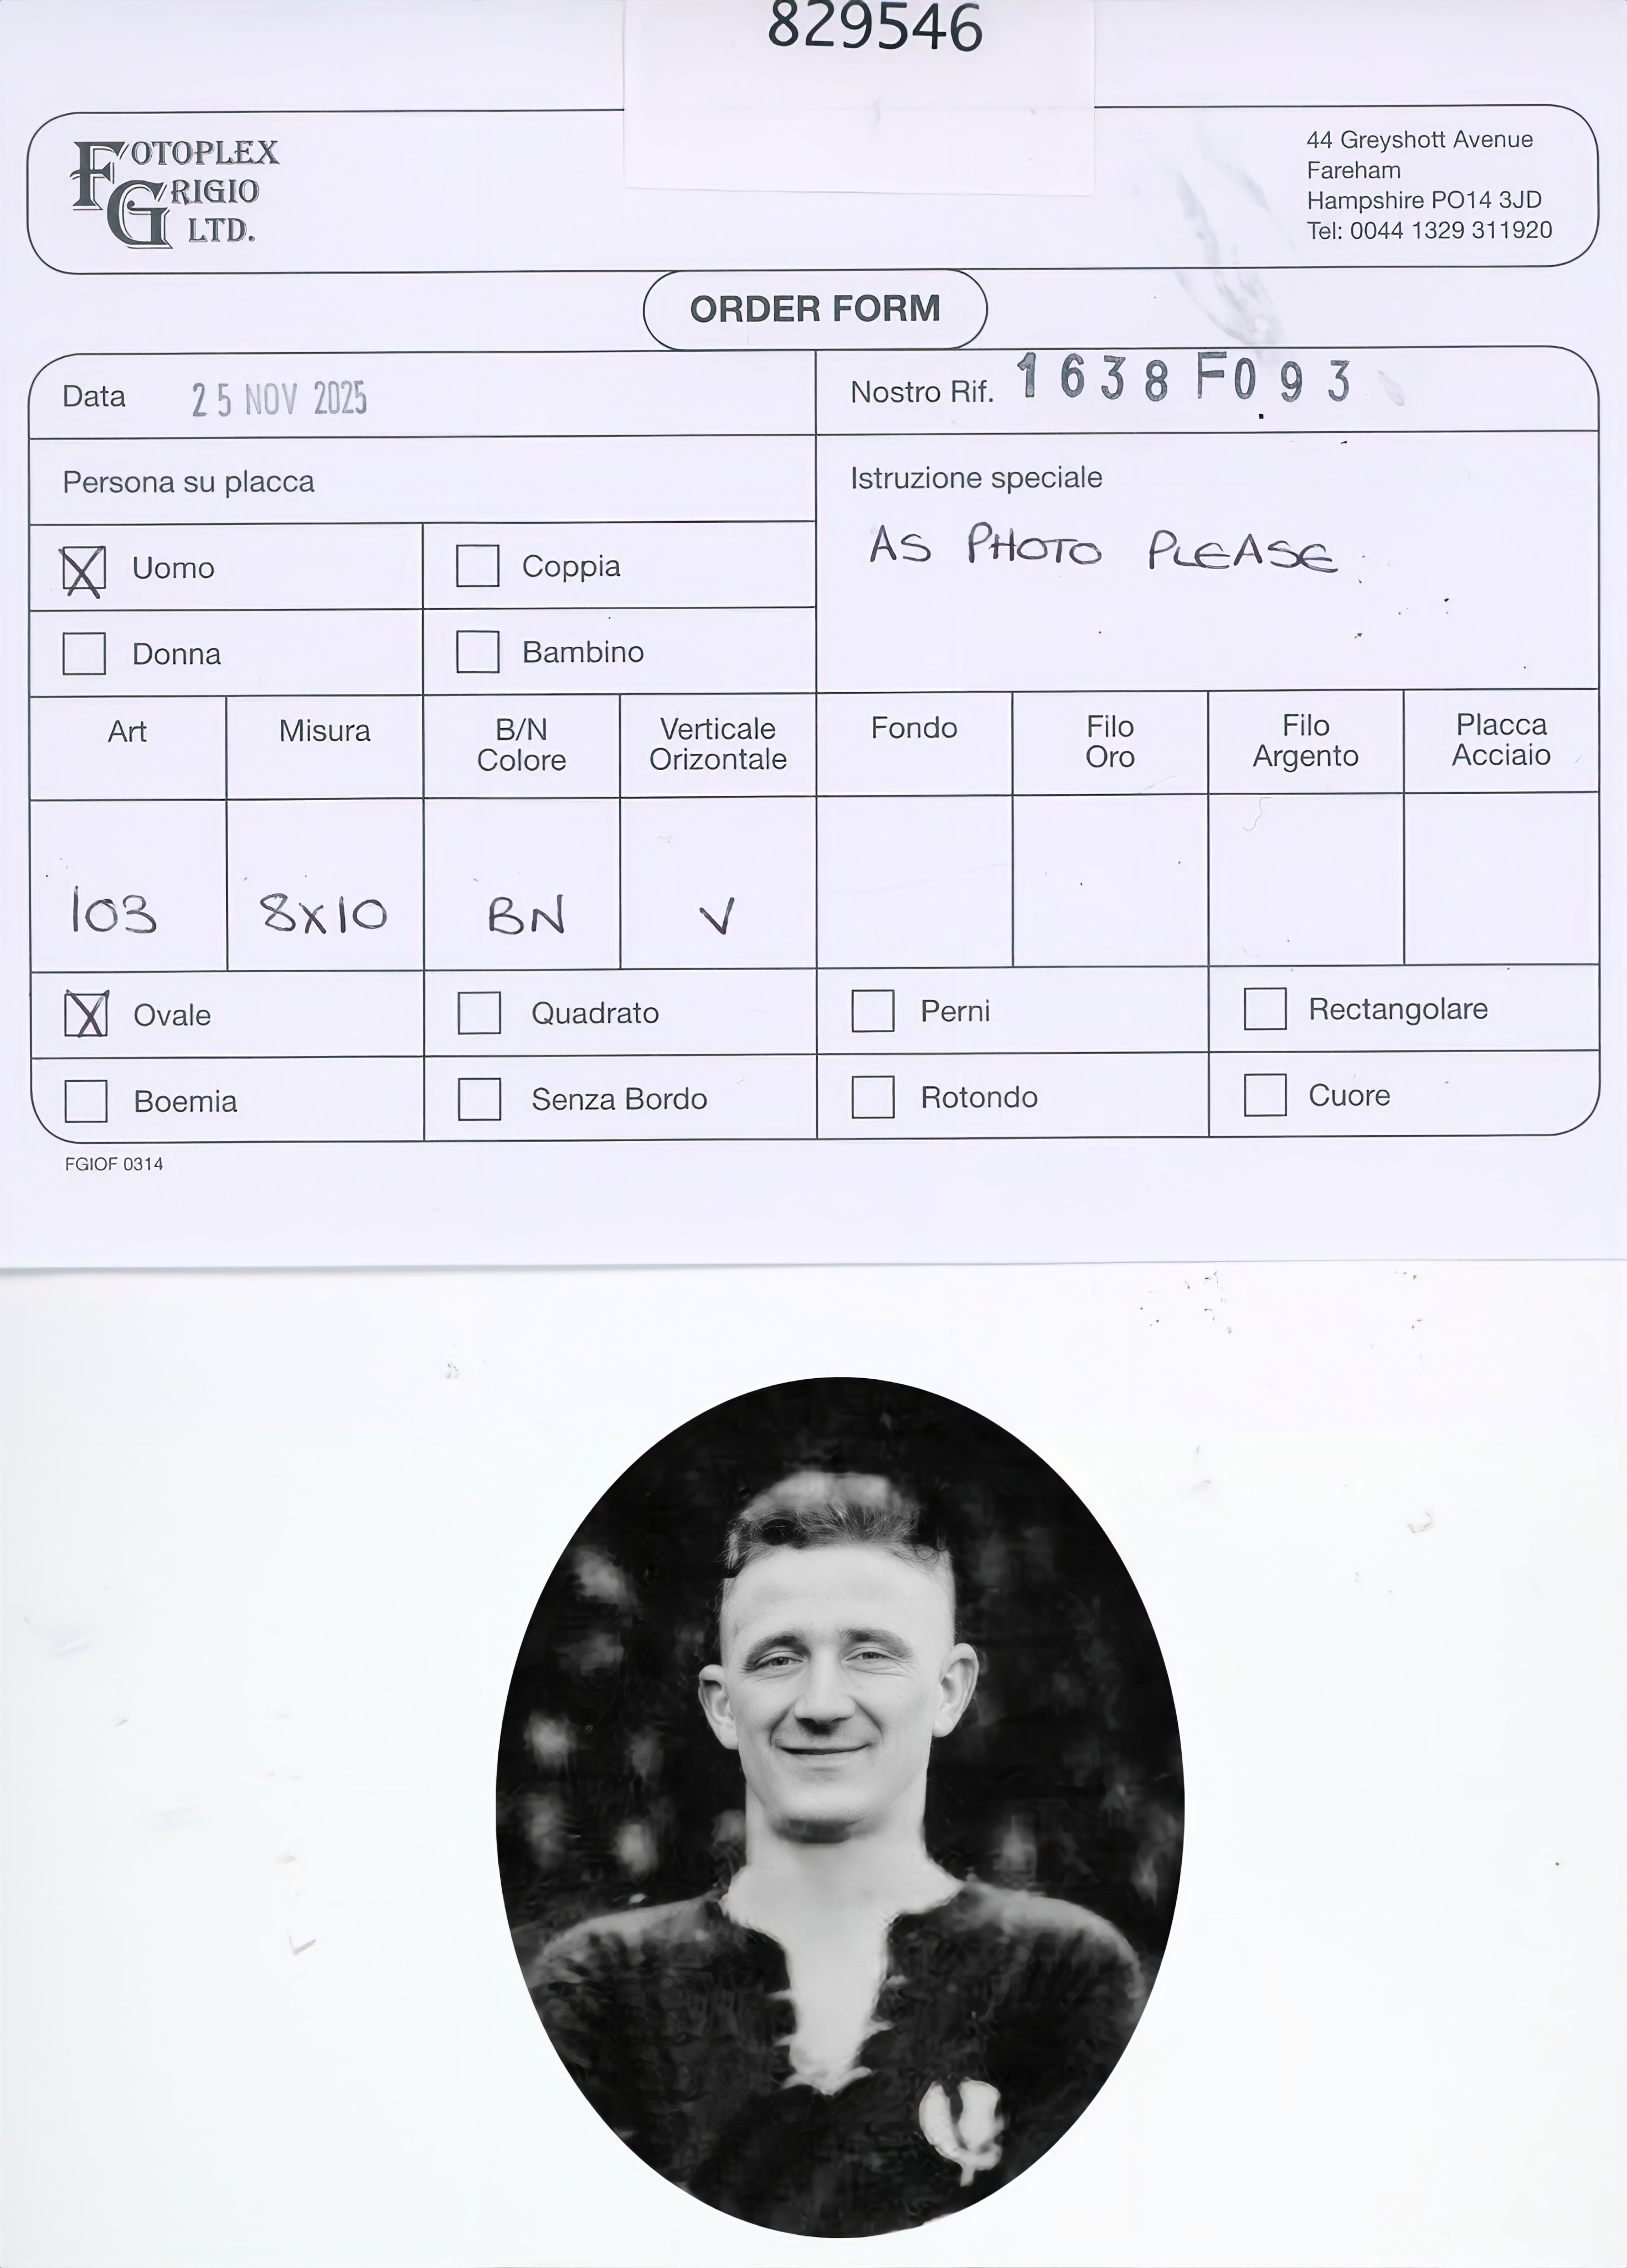 829546
FOTOPLEX
GRIGIO
LTD.
44 Greyshott Avenue
Fareham
Hampshire PO14 3JD
Tel: 0044 1329 311920
ORDER FORM
Data 25 NOV 2025
Nostro Rif. 1638 F093
Persona su placca
Istruzione speciale
AS PHOTO PLEASE
Uomo Coppia
Donna Bambino
Art Misura B/N Colore Verticale Orizontale Fondo Filo Oro Filo Argento Placca Acciaio
103 8x10 BN V
Ovale Quadrato Perni Rectangolare
Boemia Senza Bordo Rotondo Cuore
FGIOF 0314